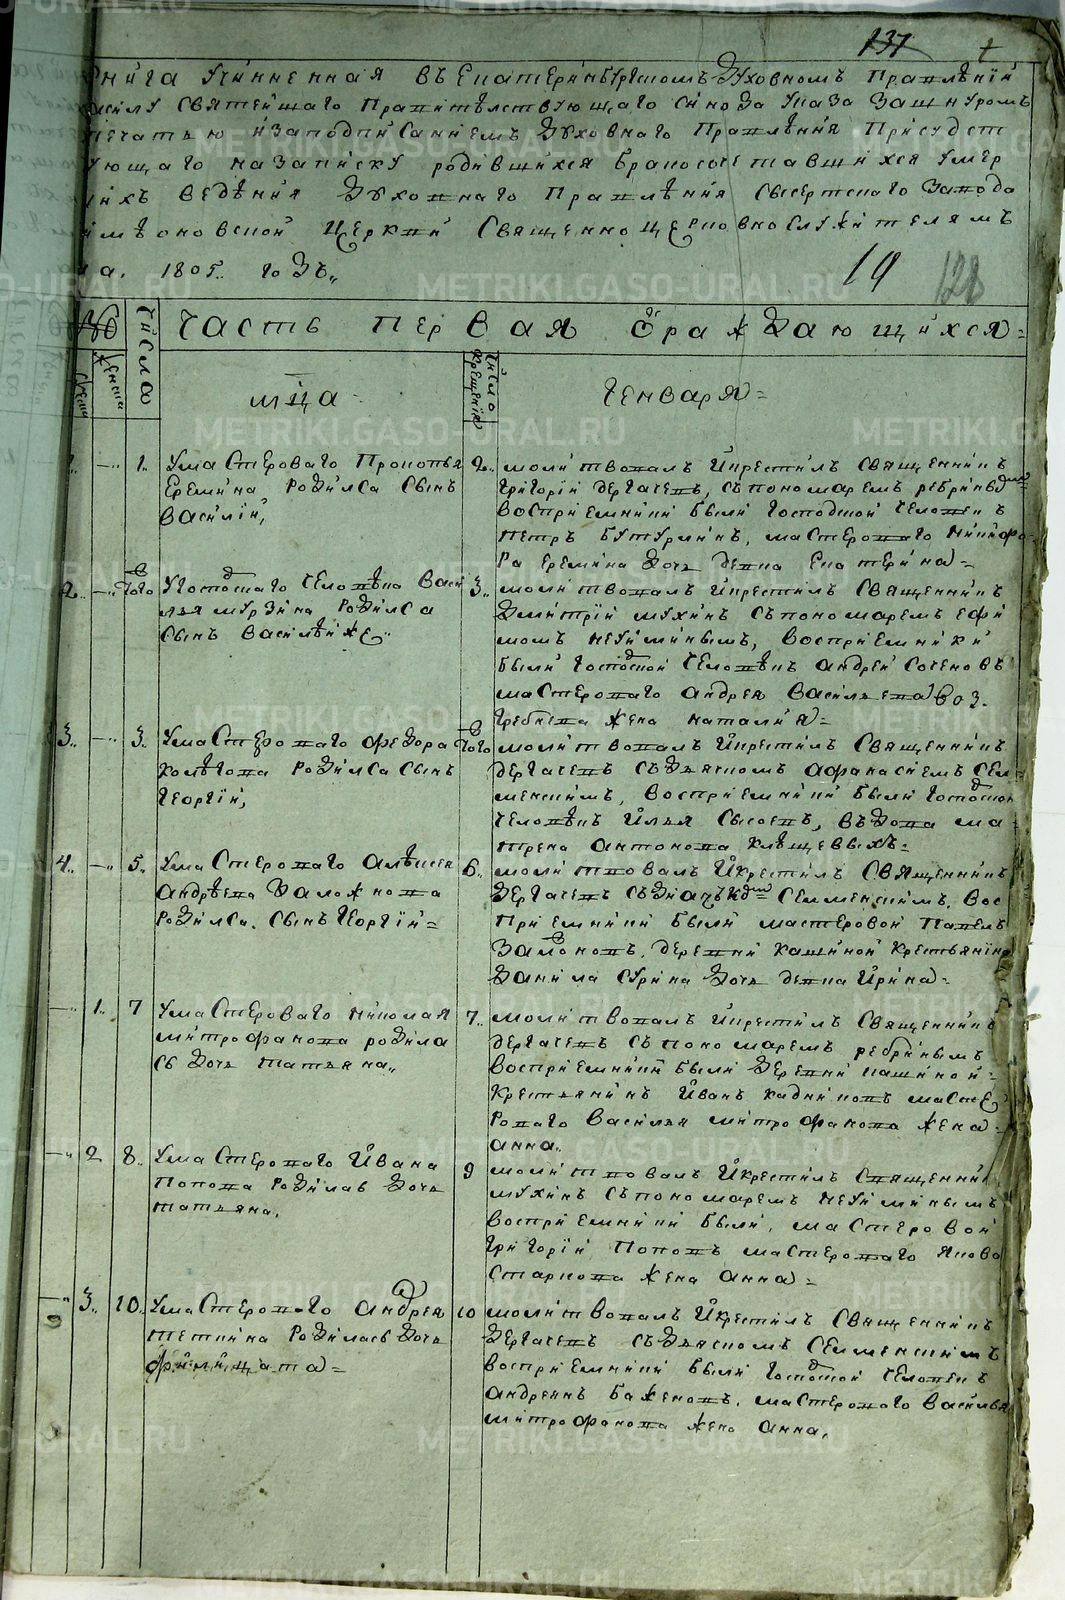 137
книга учиненная въ Екатеринбургскомъ Духовномъ Правлѣнїи
всилу Святейшаго Правителствующаго Синода Указа Зашнуромъ
печатью изаподписаниемъ Духовнаго Правлѣния Присудст
ующаго назаписку родившихся бракосочетавшихся умер
ихъ ведѣния Духовнаго Правлѣния Сысертскаго Завода
имѣоновской Церкви Священноцерковнослужителямъ
на. 1805. годъ,,
19 128
№ Числа Часть первая ѡраждающихся
женска число крещения
мца Генваря
1. 1. Умастероваго Прокопья
Еремина родился Сынъ
Василий,
2. молитвовалъ икрестилъ Священникъ
Григорїй Дергачевъ, съпономаремъ ребринымъ
восприемники были господской человек
Петръ Бутуринъ, мастероваго Никифо
ра Еремина дочь девка Екатерина
2. тогО Угосподскаго Человѣка Васи
лья мурзина родился
Сынъ Василей же
3. молитвовалъ икрестилъ Священникъ
Димитрїй мухинъ съпономаремъ ефи
момъ неуиминымъ, восприемники
были господской человѣкъ андрей Соченовъ
мастероваго андрея Васильева воз
гребнева жена наталия
3. 3. Умастероваго федора
колѣгова родился Сынъ
Георгий,
того молитвовалъ икрестилъ Священникъ
дергачевъ съдьякомъ афанасиемъ Сем
менскимъ, восприемники были господской
человѣкъ илья Сысоевъ, вдова ма
трена антонова клѣщеввыхъ
4. 5. Умастероваго алѣксея
андрѣева Заложнова
родился. Сынъ Георгїй
6. молитвовалъ икрестилъ Священникъ
дергачевъ Семменскимъ, вос
приемники были мастеровой Павелъ
деревни кашиной крестьянина
Данила сурина дочь девка ирина
1. 7 Умастероваго николая
митрофанова родила
сь дочь татьяна,,
7. молитвовалъ икрестилъ Священникъ
дергачевъ съпономаремъ ребринымъ
восприемники были деревни кашиной
крестьянинъ иванъ кадниковъ масте
роваго Василья митрофанова жена
анна.
2 8. Умастероваго Ивана
Попова родилась дочь
татьяна.
9 молитвовалъ икрестилъ Священникъ
мухинъ съпономаремъ неуиминымъ
восприемники были, мастеровой
Григорїй Поповъ мастероваго Якова
Старкова жена анна
3. 10. Умастероваго андрея
теткина родилась дочь
филицата
10 молитвовалъ икрестилъ Священникъ
дергачевъ съдьякомъ Семменскимъ
восприемники были господской человекъ
андреянъ баженовъ, мастероваго Василья
митрофанова жена анна.
METRIKI.GASO-URAL.RU